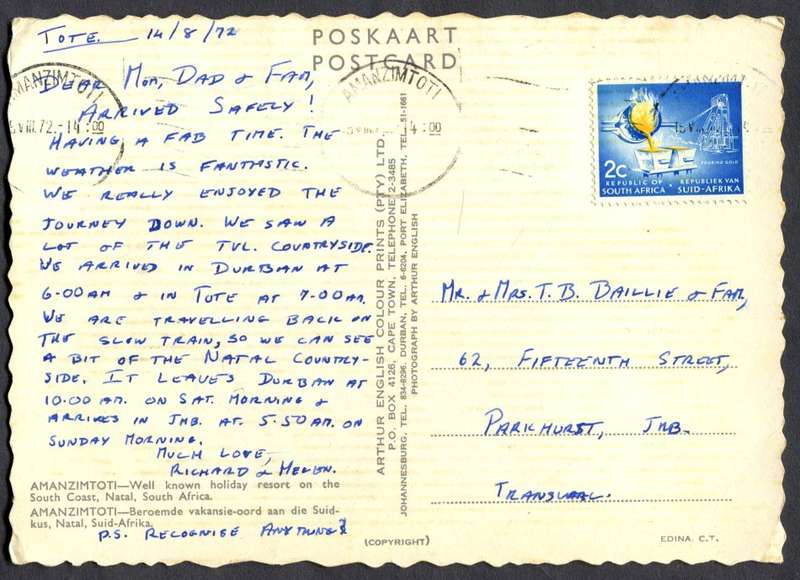 Tote. 14/8/72
POSKAART
POSTCARD
Dear Mom, Dad & Fam,
Arrived Safely!
Having a fab time. The
weather is fantastic.
We really enjoyed the
journey down. We saw a
lot of the Tvl. countryside.
We arrived in Durban at
6-00 am & in Tote at 7-00 am.
We are travelling back on
the slow train, so we can see
a bit of the Natal country-
side. It leaves Durban at
10.00 am. on Sat. morning &
arrives in Jhb. at 5.50 am. on
Sunday morning.
Much love,
Richard & Helen.
AMANZIMTOTI—Well known holiday resort on the
South Coast, Natal, South Africa.
AMANZIMTOTI—Beroemde vakansie-oord aan die Suid-
kus, Natal, Suid-Afrika.
P.S. Recognise Anything?
AMANZIMTOTI
VIII.72.-14 00
AMANZIMTOTI
VIII.72. 4 00
ARTHUR ENGLISH COLOUR PRINTS (PTY) LTD.
P.O. BOX 4126, CAPE TOWN, TELEPHONE: 2-3485
JOHANNESBURG, TEL. 834-8296, DURBAN, TEL. 6-6204, PORT ELIZABETH, TEL. 51-1661
PHOTOGRAPH BY ARTHUR ENGLISH
(COPYRIGHT)
POURING GOLD
2c
REPUBLIC OF SOUTH AFRICA · REPUBLIEK VAN SUID-AFRIKA
Mr. & Mrs. T. B. Baillie & Fam,
62, Fifteenth Street,
Parkhurst, Jhb.
Transvaal.
EDINA. C.T.